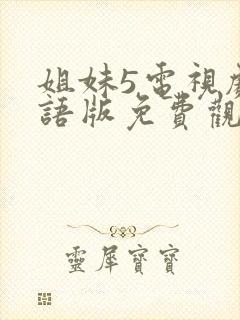 姐妹5電視
語版免費觀
靈犀寶寶